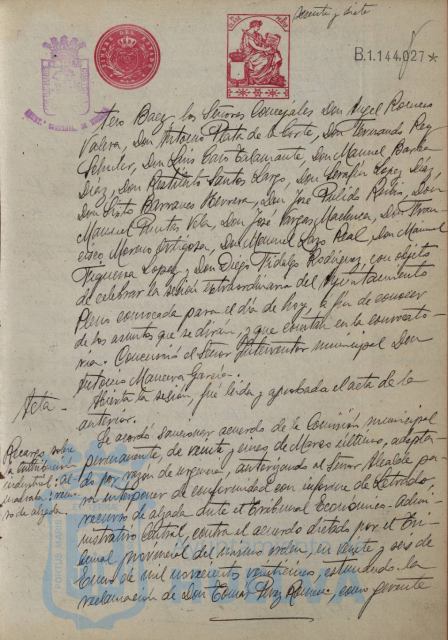 B.1.144.027*
tero Baez, los Señores Concejales Don Angel Romero
Valera, Don Antonio Plata de la Corte, Don Fernando Rey
Don Luis Talamante, Don Manuel Barba
Diaz, Don Restituto Santos Lazo, Don Serafin Lopez Diaz,
Don Sixto Barranco Herrera, Don José Pulido Rubio, Don
Manuel Puntas Vela, Don José Vargas Machuca, Don Fran
cisco Moreno Ortigosa, Don Manuel Lazo Real, Don Manuel
Figueroa Lopez y Don Diego Fidalgo Rodriguez, con objeto
de celebrar la sesión extraordinaria del Ayuntamiento
Pleno convocada para el día de hoy, a fin de conocer
de los asuntos que se dirán, y que constan en la convocato-
ria. Concurrió el Señor Interventor municipal Don
Antonio Manceva Garcia.
Acta.-
Abierta la sesión, fué leída y aprobada el acta de la
anterior.
Recargo sobre
la contribución
industrial:
recur
so de alzada.
Se acordó sancionar acuerdo de la Comisión municipal
permanente, de veinte y cinco de Marzo último, adopta
do por razón de urgencia, autorizando al Señor Alcalde pa-
ra interponer de conformidad con informe de Letrado,
recurso de alzada ante el Tribunal Económico-Admi-
nistrativo Central, contra el acuerdo dictado por el Tri-
bunal provincial del mismo orden, en veinte y seis de
Enero de mil novecientos veinticinco, estimando la
reclamación de Don Tomas Perez como gerente